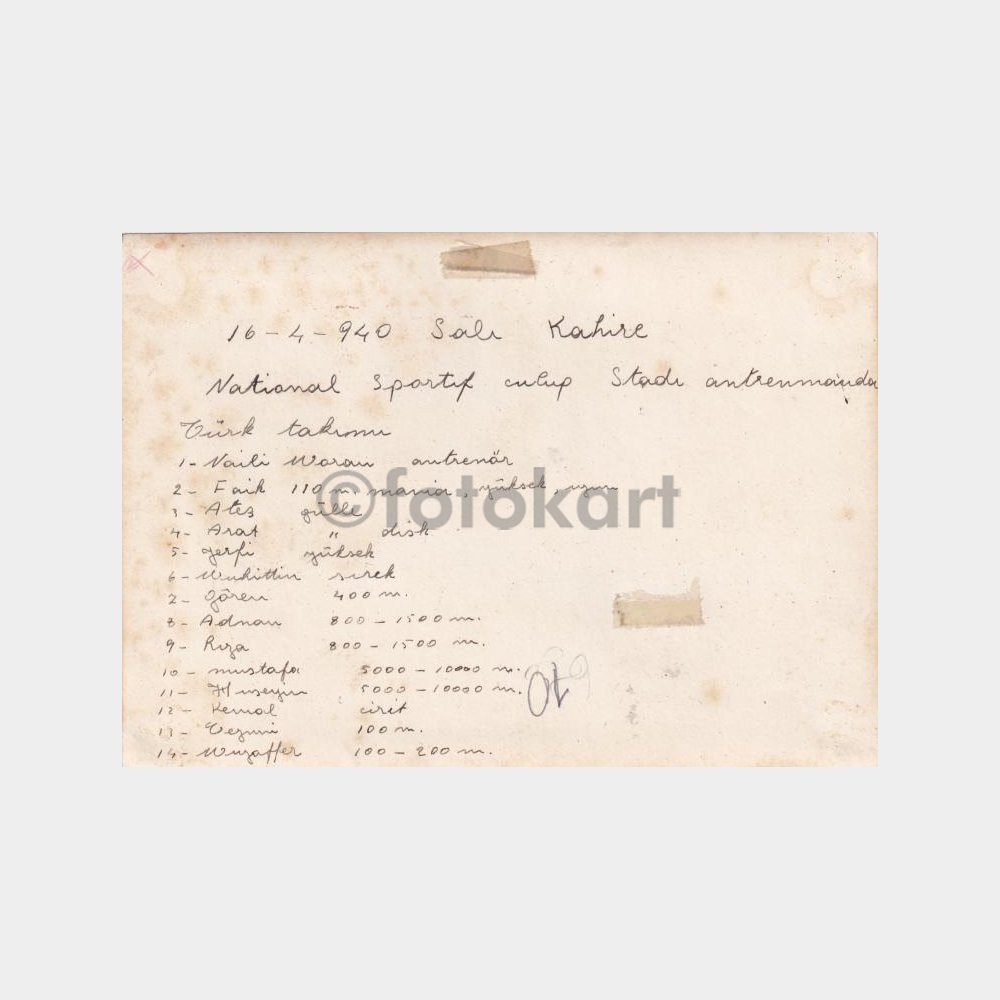 16-4-940 Salı Kahire
National Sportif culup Stadı antrenmanda
Türk takımı
1- Naili Moran antrenör
2- Faik 110 m. mania, yüksek, uzun
3- Ateş gülle
4- Arat " disk
5- Jerfi yüksek
6- Muhittin sırek
7- Gören 400 m.
8- Adnan 800-1500 m.
9- Rıza 800-1500 m.
10- mustafa 5000-10000 m.
11- Huseyin 5000-10000 m.
12- Kemal cirit
13- Cezmi 100 m.
14- Muzaffer 100-200 m.
©fotokart